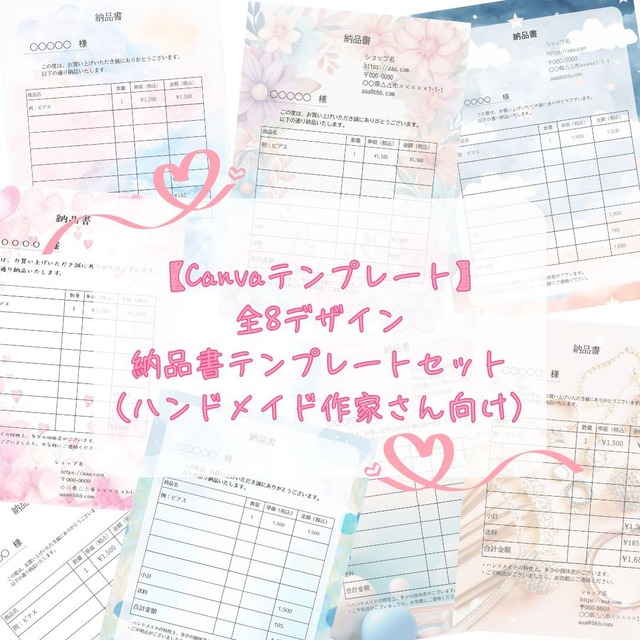 納品書
○○○○○ 様
この度は、お買い上げいただき誠にありがとうございます。
以下の通り納品いたします。
商品名 数量 単価（税込） 金額（税込）
例：ピアス 1 ¥1,500 ¥1,500
納品書
ショップ名
https://aaa.com
〒000-0000
○○県△△市×××××1-1-1
aaa@bbb.com
○○○○○ 様
この度は、お買い上げいただき誠にありがとうございます。
以下の通り納品いたします。
商品名 数量 単価（税込） 金額（税込）
例：ピアス 1 ¥1,500 ¥1,500
納品書
ショップ名
https://aaa.com
〒000-0000
○○県△△市×××××1-1-1
aaa@bbb.com
○○○○ 様
数量 単価（税込） 金額（税込）
1,500
185
1,685
納品書
○○○○○ 様
ショップ名
https://aaa.com
〒000-0000
○○県△△市×××××1-1-1
aaa@bbb.com
【Canvaテンプレート】
全8デザイン
納品書テンプレートセット
(ハンドメイド作家さん向け)
納品書
この度は、お買い上げいただき誠にありがとうございます。
以下の通り納品いたします。
商品名 数量 単価（税込） 金額（税込）
例：ピアス 1 1,500 1,500
小計
送料 1,500
合計金額 185
合計金額
納品書
数量 単価（税込） 金額（税込）
1 ¥1,500
小計
送料 ¥185
合計金額
・ハンドメイドの特性上、多少の個体差がございます。
ショップ名
https://aaa.com
〒000-0000